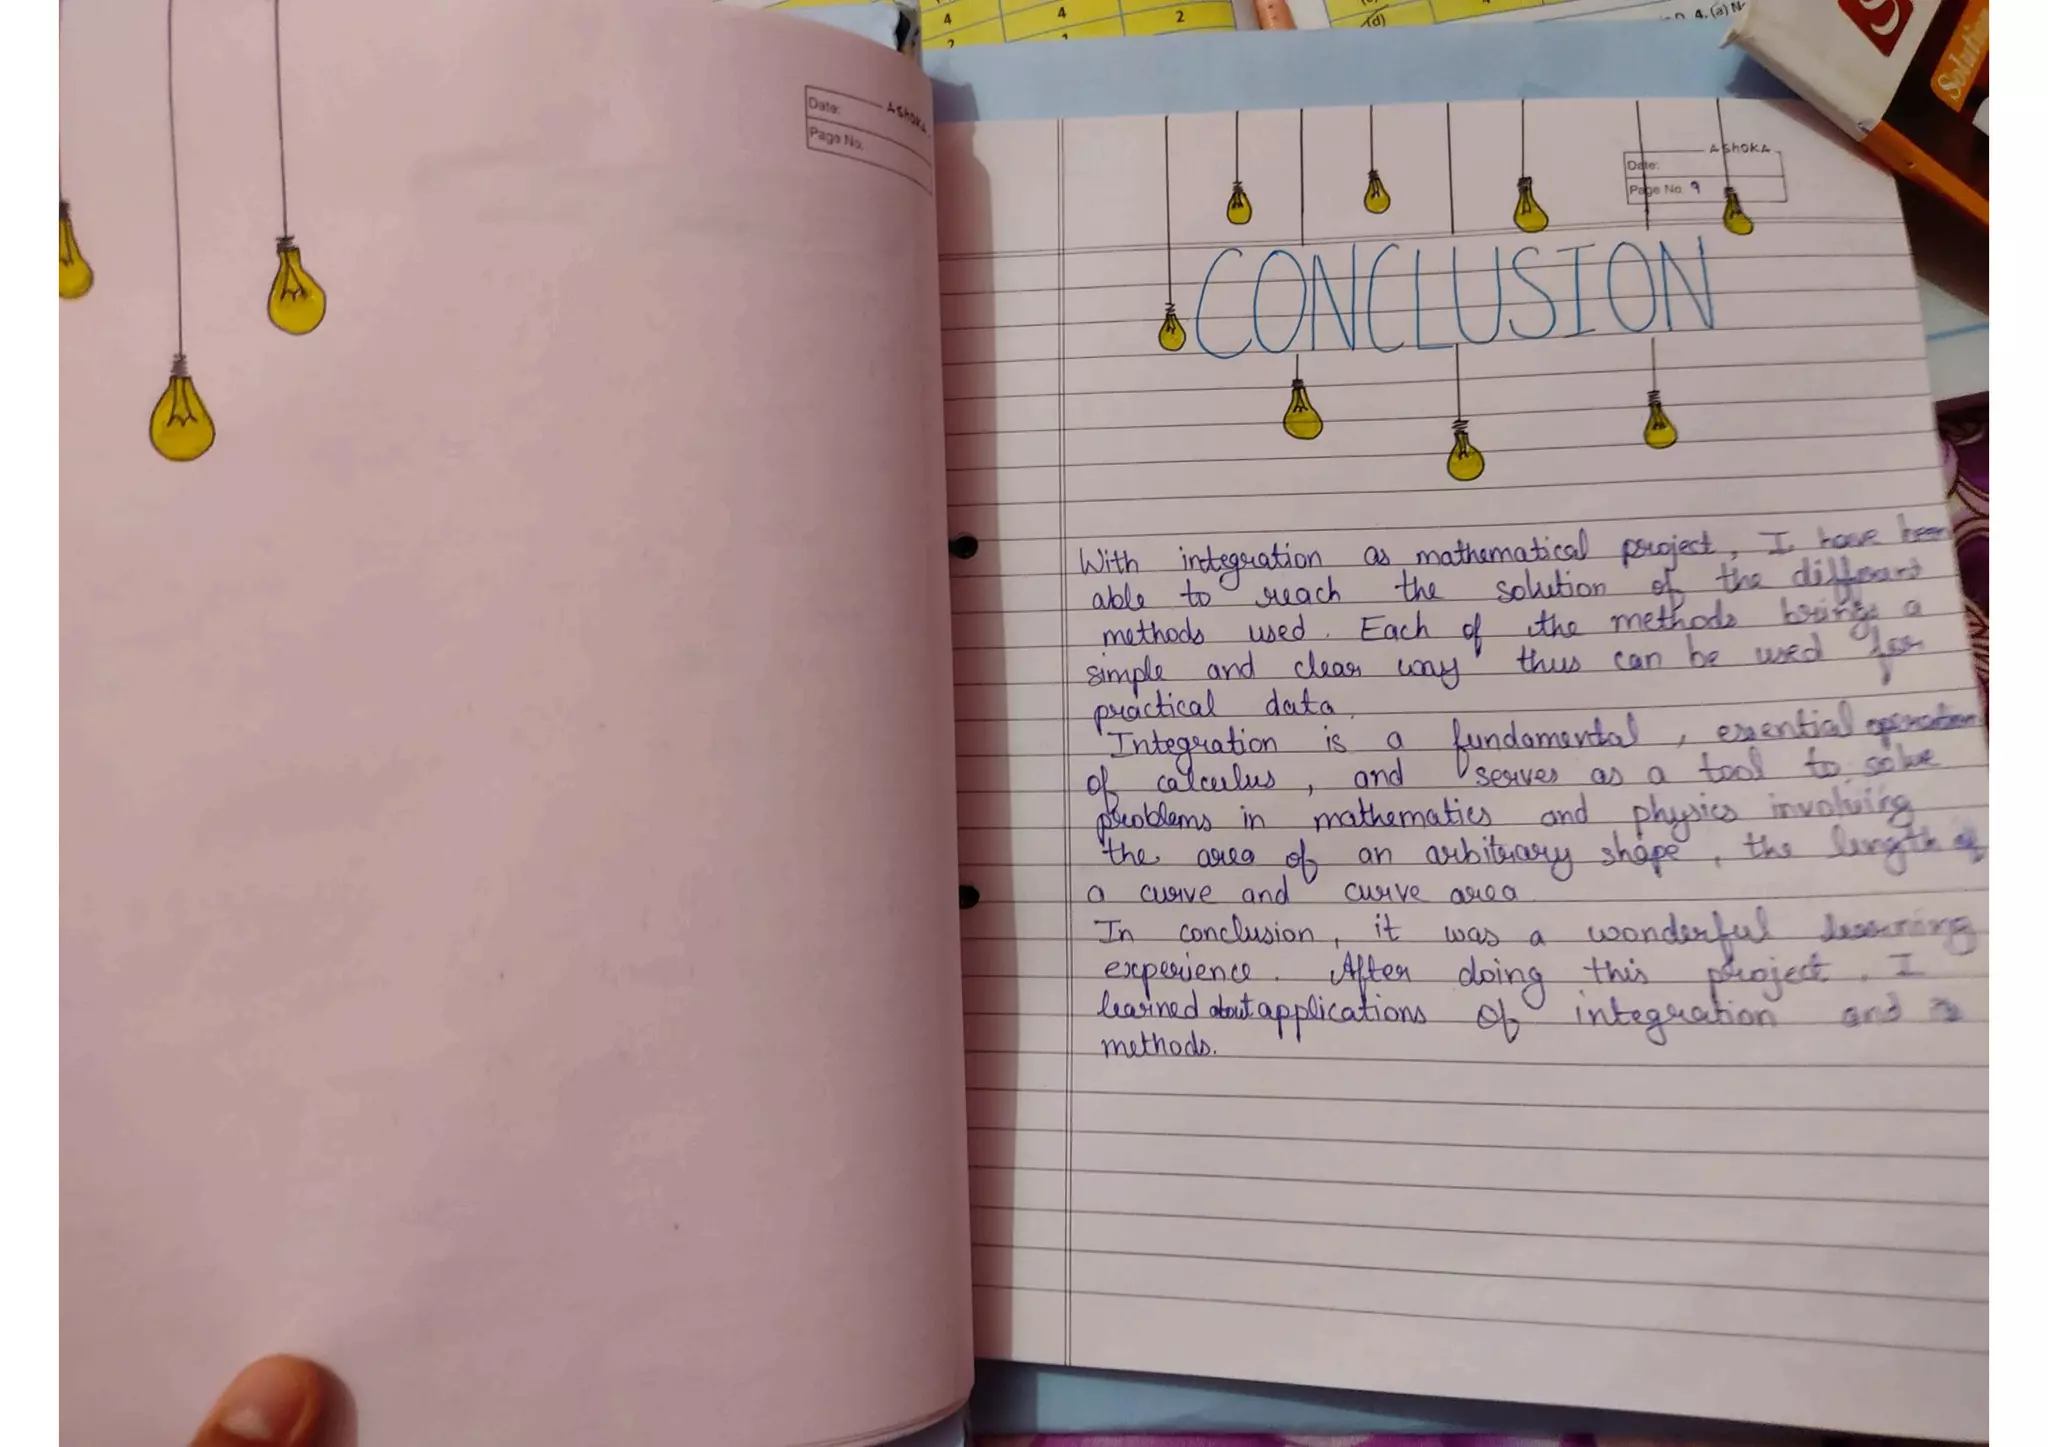 4 4 2
2
(d)
4. (a) N
Solution
Date: ASHOKA
Page No.
ASHOKA
Date:
Page No. 9
CONCLUSION
With integration as mathematical project, I have been
able to reach the solution of the different
methods used. Each of the methods brings a
simple and clear way thus can be used for
practical data.
Integration is a fundamental, essential operation
of calculus, and serves as a tool to solve
problems in mathematics and physics involving
the area of an arbitrary shape, the length of
a curve and curve area
In conclusion, it was a wonderful learning
experience. After doing this project. I
learned about applications of integration and
methods.